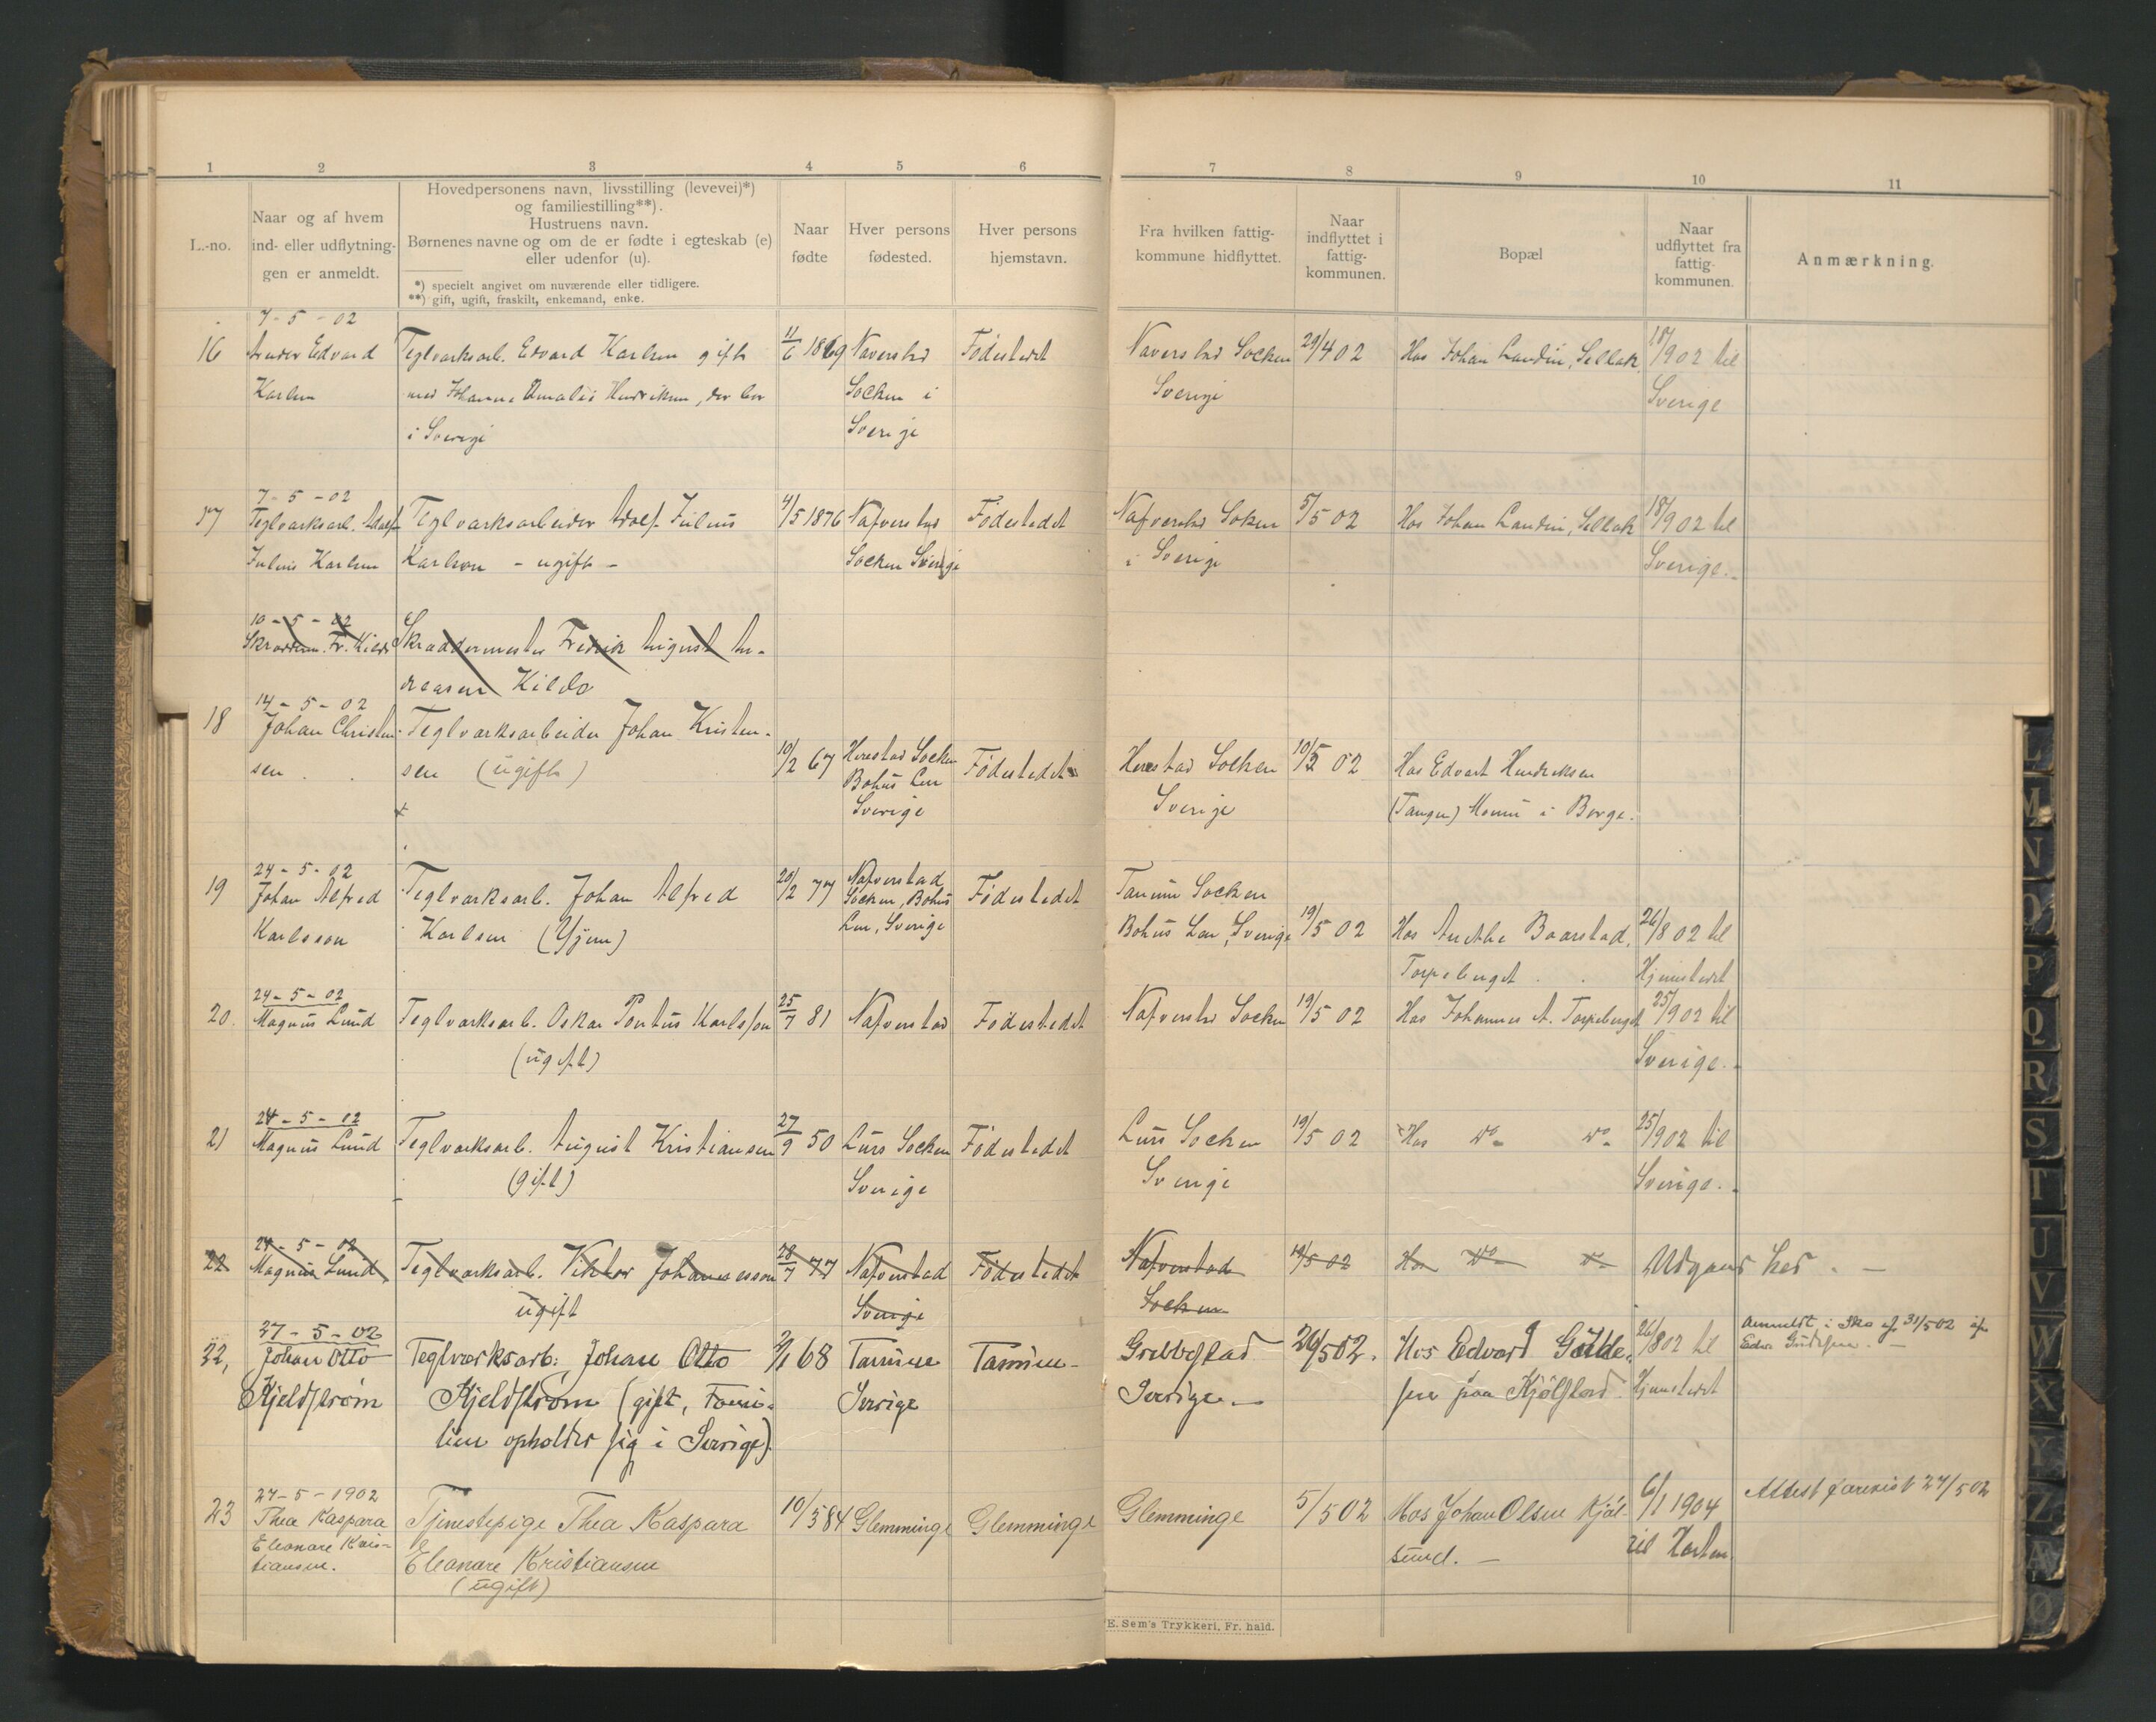 1 2 3 4 5 6 7 8 9 10 11
L.-no.
Naar og af hvem
ind- eller udflytnin-
gen er anmeldt.
Hovedpersonens navn, livsstilling (levevei)*)
og familiestilling**).
Hustruens navn.
Børnenes navne og om de er fødte i egteskab (e)
eller udenfor (u).
*) specielt angivet om nuværende eller tidligere.
**) gift, ugift, fraskilt, enkemand, enke.
Naar
fødte
Hver persons
fødested.
Hver persons
hjemstavn.
Fra hvilken fattig-
kommune hidflyttet.
Naar
indflyttet i
fattig-
kommunen.
Bopæl
Naar
udflyttet fra
fattig-
kommunen.
Anmærkning.
7-5-02
16 Edvard Teglværksarb. Edvard Karlsen gift 11/6 1869 Naverstad Fødestedet Naverstad Socken 29/4 02 Hos Johan Landin, Sellak 18/9 02 til
Karlsen med Johanne Amalie Hendriksen, der bor Socken i Sverige Sverige
i Sverige Sverige
7-5-02
17 Teglværksarb. Adolf Teglværksarbeider Adolf Julius 4/5 1876 Nafverstad Fødestedet Nafverstad Soken 5/5 02 Hos Johan Landin, Sellak 18/9 02 til
Julius Karlsen Karlson - ugift - Socken Sverige i Sverige Sverige.
10-5-02
Skrædderm. Fr. Kildo Skræddermester Fredrik August An-
dreasen Kildo
14-5-02
18 Johan Christen- Teglværksarbeider Johan Kristen-
sen sen (ugift) 10/2 67 Herestad Socken Fødestedet Herestad Socken 10/5 02 Hos Edvart Hendriksen
Bohus Len Sverige (Tangen) Moum i Borge.
Sverige
24-5-02
19 Johan Alfred Teglværksarb. Johan Alfred 20/2 77 Nafverstad Fødestedet Tanum Socken
Karlsson Karlsen (Gjem) Socken, Bohus Bohus Len, Sverige 19/5 02 Hos Anethe Baarstad, 26/8 02 til
Len, Sverige Torpeberget Hjemstedet
24-5-02
20. Magnus Lund Teglværksarb. Oskar Pontus Karlsson 25/7 81 Nafverstad Fødestedet Nafverstad Socken 19/5 02 Hos Johannes A. Torpeberget 25/9 02 til
(ugift) Sverige.
24-5-02
21 Magnus Lund Teglværksarb. August Kristiansen 27/9 50 Lurs Socken Fødestedet Lurs Socken 19/5 02 Hos do do 25/9 02 til
(gift) Sverige Sverige Sverige.
24-5-02
22 Magnus Lund Teglværksarb. Viktor Johannesson 28/7 77 Nafverstad Fødestedet Nafverstad 19/5 02 Hos do do Udgaar her. -
ugift Sverige Socken
27-5-02
22, Johan Otto Teglværksarb: Johan Otto 68 Tanum Tanum- Grebbestad 26/5 02. Hos Edvard 26/8 02 til Anmeldt i 31/5 02 af
Kjeldstrøm Kjeldstrøm (gift, Fami- Sverige Sverige.- sen paa Kjølstad Hjemstedet Edv.
lien opholder sig i Sverige)
27-5-1902
23 Thea Kaspara Tjenestepige Thea Kaspara 10/3 84 Glemminge Glemminge Glemminge 5/5 02 Hos Johan Olsen Kjøl- 6/1 1904 Attest forevist 27/5 02
Eleonore Kris- Eleonore Kristiansen sund. - til Horten
tiansen. (ugift)
E. Sem's Trykkeri, Fr. hald.
L
M
N
O
P
Q
R
S
T
U
V
W
X
Y
Z
Æ
Ø